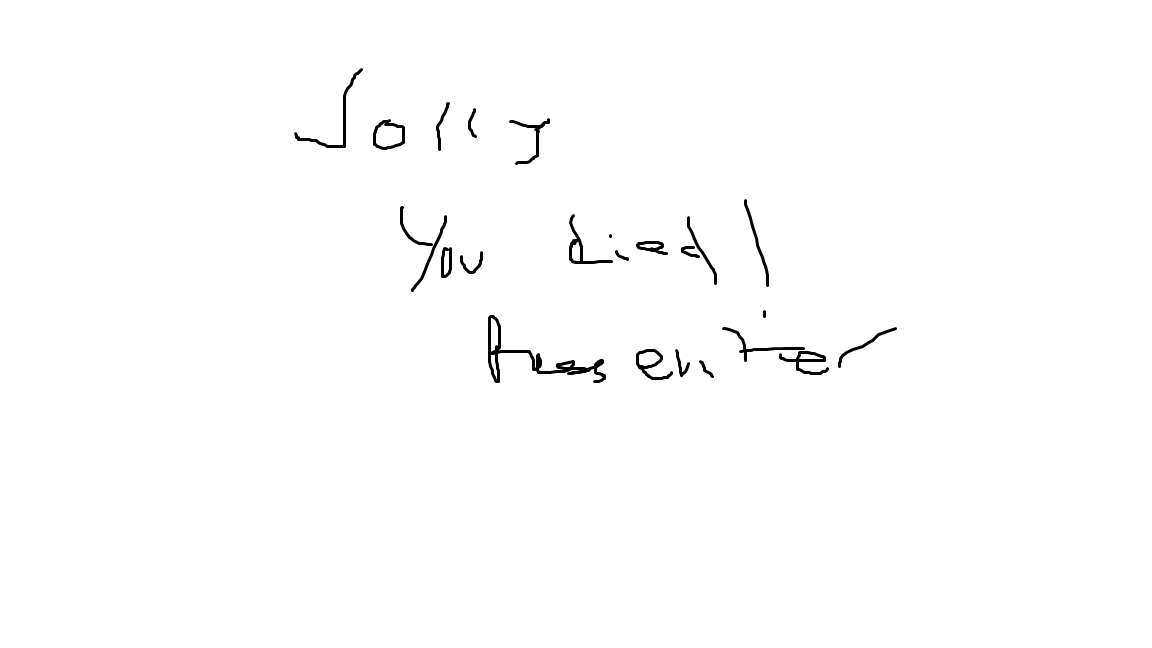 Sorry
You died!
Press enter